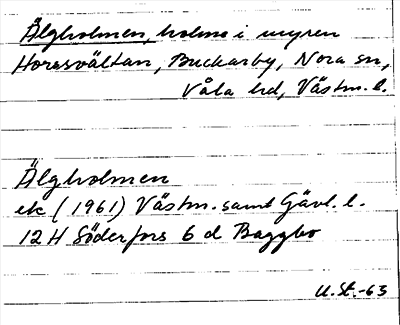 Älgholmen, holme i myren
Horssvältan, Buckarby, Nora sn,
Våla hd, Västm. l.
Älgholmen
ek (1961) Västm. samt Gävl. l.
12 H Söderfors 6 d Baggbo
U.St.-63